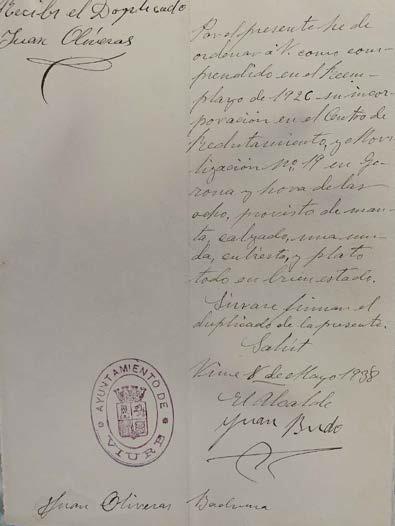 Recibi el Duplicado
Juan Oliveras
Por el presente he de
ordenar á V. como com-
prendido en el Reem-
plazo de 1926 su incor-
poración en el Centro de
Reclutamiento y Movi-
lización nº 19 en Ge-
rona y hora de las
ocho, provisto de man-
ta, calzado, una mu-
da, cubierto, y plato
todo en buen estado.
Sirvase firmar el
duplicado de la presente.
Salut
Viure 8 de Mayo 1938
El Alcalde
Juan Budo
AYUNTAMIENTO DE VIURE
Juan Oliveras